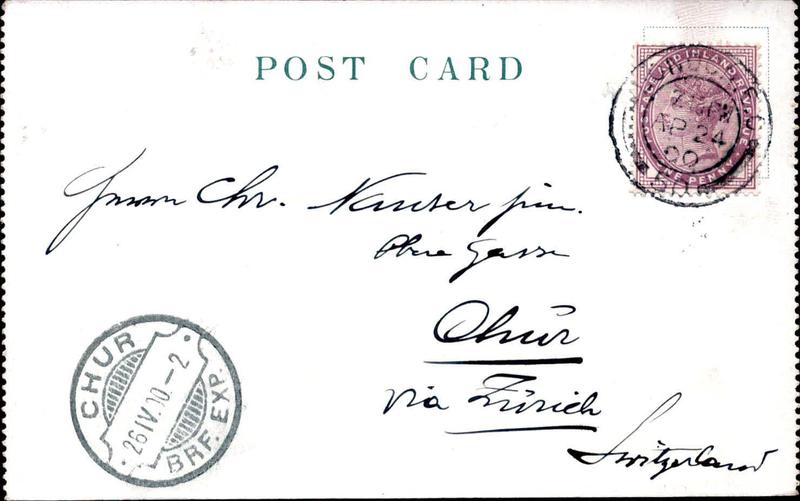 POST CARD
POSTAGE AND INLAND REVENUE
ONE PENNY
AP 24
00
Herrn Chr. Nauser jun.
Obere Gasse
Chur
via Zürich
Switzerland
CHUR
26 IV.00-2
BRF. EXP.